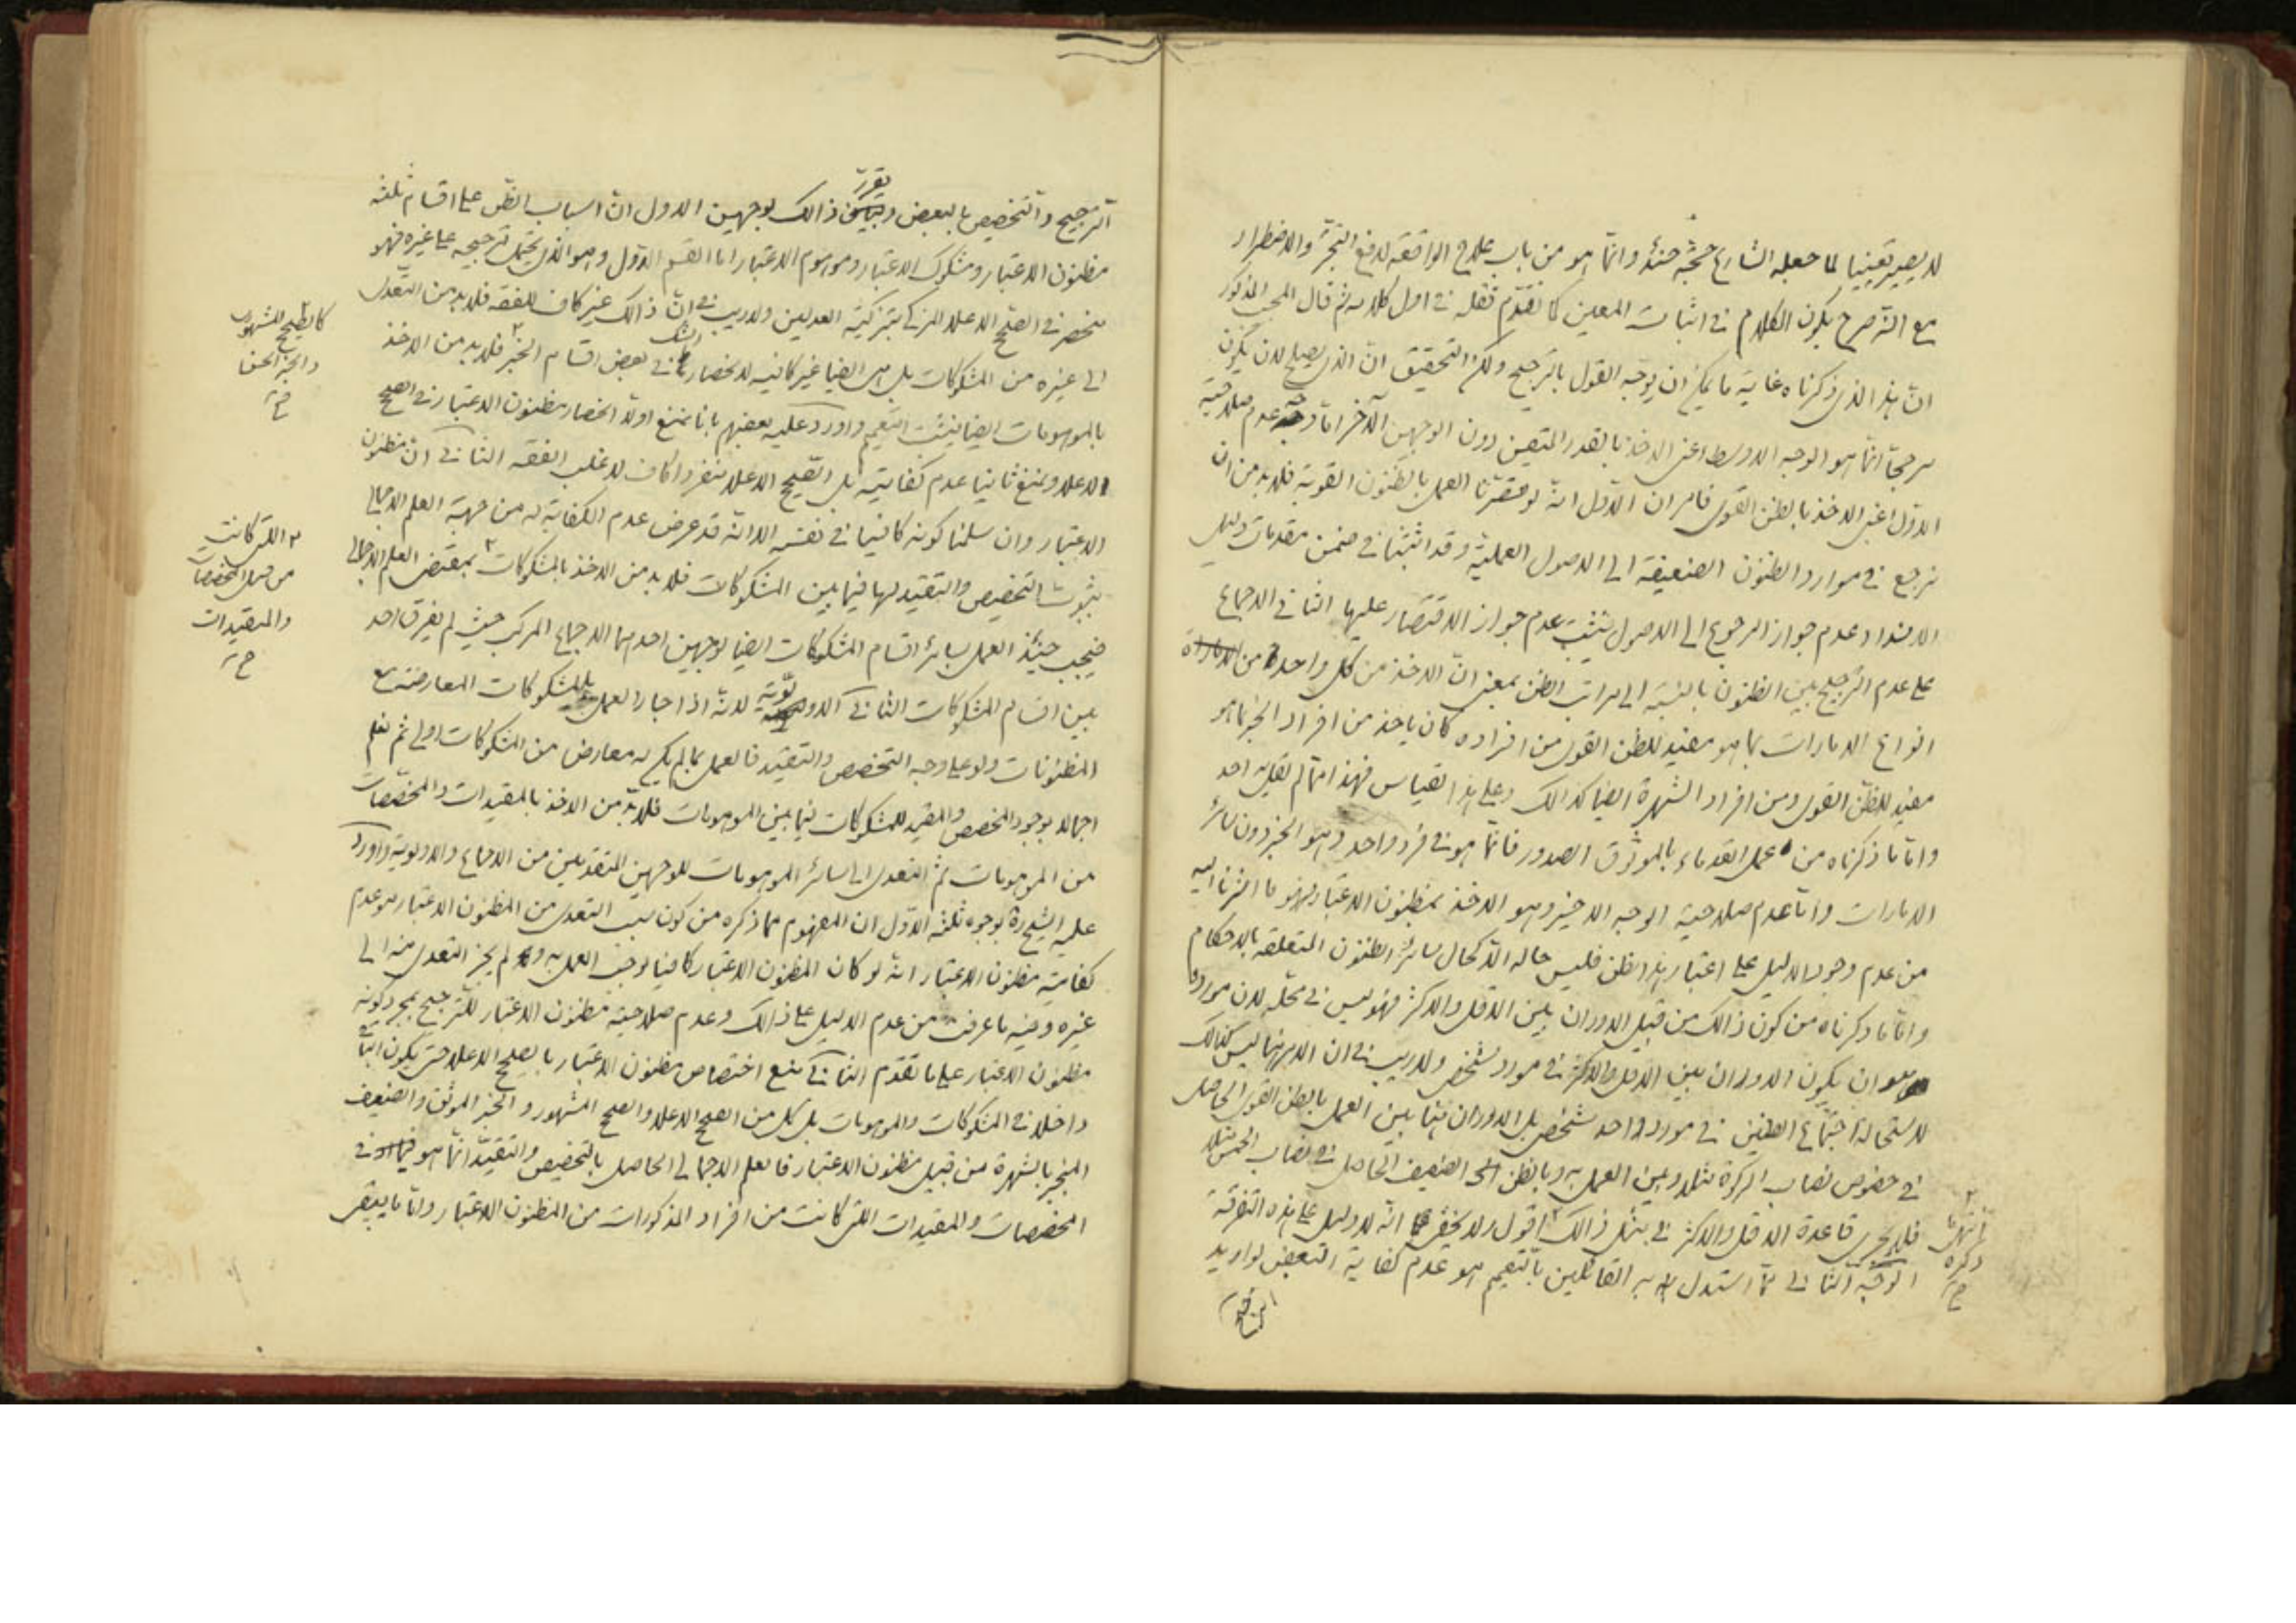 لا يصير تعيينا لما جعله الشارع حجة حينئذ وانما هو من باب علاج الواقعة لدفع التحير والاضطرار
مع انه صرح بكون الكلام في اثبات المعين كما تقدم نقله في اول كلامه ثم قال المجيب المذكور
ان هذا الذي ذكرناه غاية ما يمكن ان يوجه القول بالترجيح ولكن التحقيق ان الذي يصلح لان يكون
مرجحا انما هو الوجه الاوسط اعنى الاخذ بالقدر المتيقن دون الوجهين الآخر اما وجه عدم صلاحية
الاول اعنى الاخذ بالظن القوى فامران الاول انه لو اقتصرنا العمل بالظنون القوية فلا بد من ان
نرجع في موارد الظنون الضعيفة الى الاصول العملية وقد اثبتنا في ضمن مقدمات دليل
الانسداد عدم جواز الرجوع الى الاصول فيثبت عدم جواز الاقتصار عليها الثاني الاجماع
على عدم الترجيح بين الظنون بالنسبة الى مراتب الظن بمعنى ان الاخذ من كل واحد من
انواع الامارات بما هو مفيد للظن القوى من افراده كان ياخذ من افراد الخبر ما هو
مفيد للظن القوى ومن افراد الشهرة ايضا كذالك وعلى هذا القياس فهذا مما لم يقل به احد
واما ما ذكرناه من عمل القدماء بالموثوق الصدور فانما هو في فرد واحد وهو الخبر دون سائر
الامارات واما عدم صلاحية الوجه الاخير وهو الاخذ بمظنون الاعتبار فهو ما اشرنا اليه
من عدم وجود الدليل على اعتبار هذا الظن فليس حاله الا كحال سائر الظنون المتعلقة بالاحكام
واما ما ذكرناه من كون ذالك من قبيل الدوران بين الاقل والاكثر فهو ليس في محله لان موردها
هو ان يكون الدوران بين الاقل والاكثر في مورد شخصى ولا ريب في ان الامر هنا ليس كذالك
لاستحالة اجتماع الظنين في مورد واحد شخصى بل الدوران هنا بين العمل بالظن القوى الحاصل
في خصوص نصاب الزكوة مثلا وبين العمل به وبالظن الضعيف الحاصل في نصاب الخمس مثلا
فلا يجرى قاعدة الاقل والاكثر في مثل ذالك اقول ولا يخفى انه لا دليل على هذه التفرقة
الوجه الثاني مما استدل به القائلين بالتعميم هو عدم كفاية البعض لو اريد
انتهى
ذكره
الترجيح والتخصيص بالبعض وتقرر ذالك بوجهين الاول ان اسباب الظن على اقسام ثلثة
مظنون الاعتبار ومشكوك الاعتبار وموهوم الاعتبار اما القسم الاول وهو الذي يحتمل ترجيحه على غيره فهو
منحصر في الصحيح الاعلا المزكى بتزكية العدلين ولا ريب في ان ذالك غير كاف للفقه فلا بد من التعدى
الى غيره من المشكوكات بل هى ايضا غير كافية لانحصار الشك في بعض اقسام الخبر فلا بد من الاخذ
بالموهومات ايضا فيثبت التعميم واورد عليه بعضهم بانا نمنع اولا انحصار مظنون الاعتبار في الصحيح
الاعلا ونمنع ثانيا عدم كفايته بل الصحيح الاعلا منفردا كاف لاغلب الفقه الثاني ان مظنون
الاعتبار وان سلمنا كونه كافيا في نفسه الا انه قد عرض عدم الكفاية له من جهة العلم الاجمالى
بثبوت التخصيص والتقييد لها فيما بين المشكوكات فلا بد من الاخذ بالمشكوكات بمقتضى العلم الاجمالى
فيجب حينئذ العمل بسائر اقسام المشكوكات ايضا لوجهين احدهما الاجماع المركب حيث لم يفرق احد
بين اقسام المشكوكات الثاني الاولوية لانه اذا جاز العمل بالمشكوكات المعارضة مع
المظنونات ولو على وجه التخصيص والتقييد فالعمل بما لم يكن له معارض من المشكوكات اولى ثم نعلم
اجمالا بوجود المخصص والمقيد للمشكوكات فيما بين الموهومات فلا بد من الاخذ بالمقيدات والمخصصات
من الموهومات ثم التعدى الى سائر الموهومات للوجهين المتقدمين من الاجماع والاولوية واورد
عليه الشيخ ره بوجوه ثلثة الاول ان المفهوم مما ذكره من كون سبب التعدى من المظنون الاعتبار هو عدم
كفاية مظنون الاعتبار انه لو كان المظنون الاعتبار كافيا لوجب العمل به ولم يجز التعدى منه الى
غيره وفيه ما عرفت من عدم الدليل على ذالك وعدم صلاحية مظنون الاعتبار للترجيح بمجرد كونه
مظنون الاعتبار على ما تقدم الثاني نمنع اختصاص مظنون الاعتبار بالصحيح الاعلا حتى يكون
داخلا في المشكوكات والموهومات بل كل من الصحيح الاعلا والصحيح المشهور والخبر الموثق والضعيف
المنجبر بالشهرة من قبيل مظنون الاعتبار فالعلم الاجمالى الحاصل بالتخصيص والتقييد انما هو في
المخصصات والمقيدات اللتى كانت من افراد المذكورات من المظنون الاعتبار واما ما يبقى
كالصحيح المشهور
والخبر الحسن
اللتى كانت
من قبيل المخصصات
والمقيدات